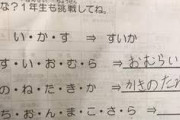 な？１年生も挑戦してね。
い・か・す ⇒ すいか
す・い・お・む・ら ⇒ おむらい
の・ね・た・き・か ⇒ かきのたね
ち・お・ん・ま・こ・さ・ら ⇒